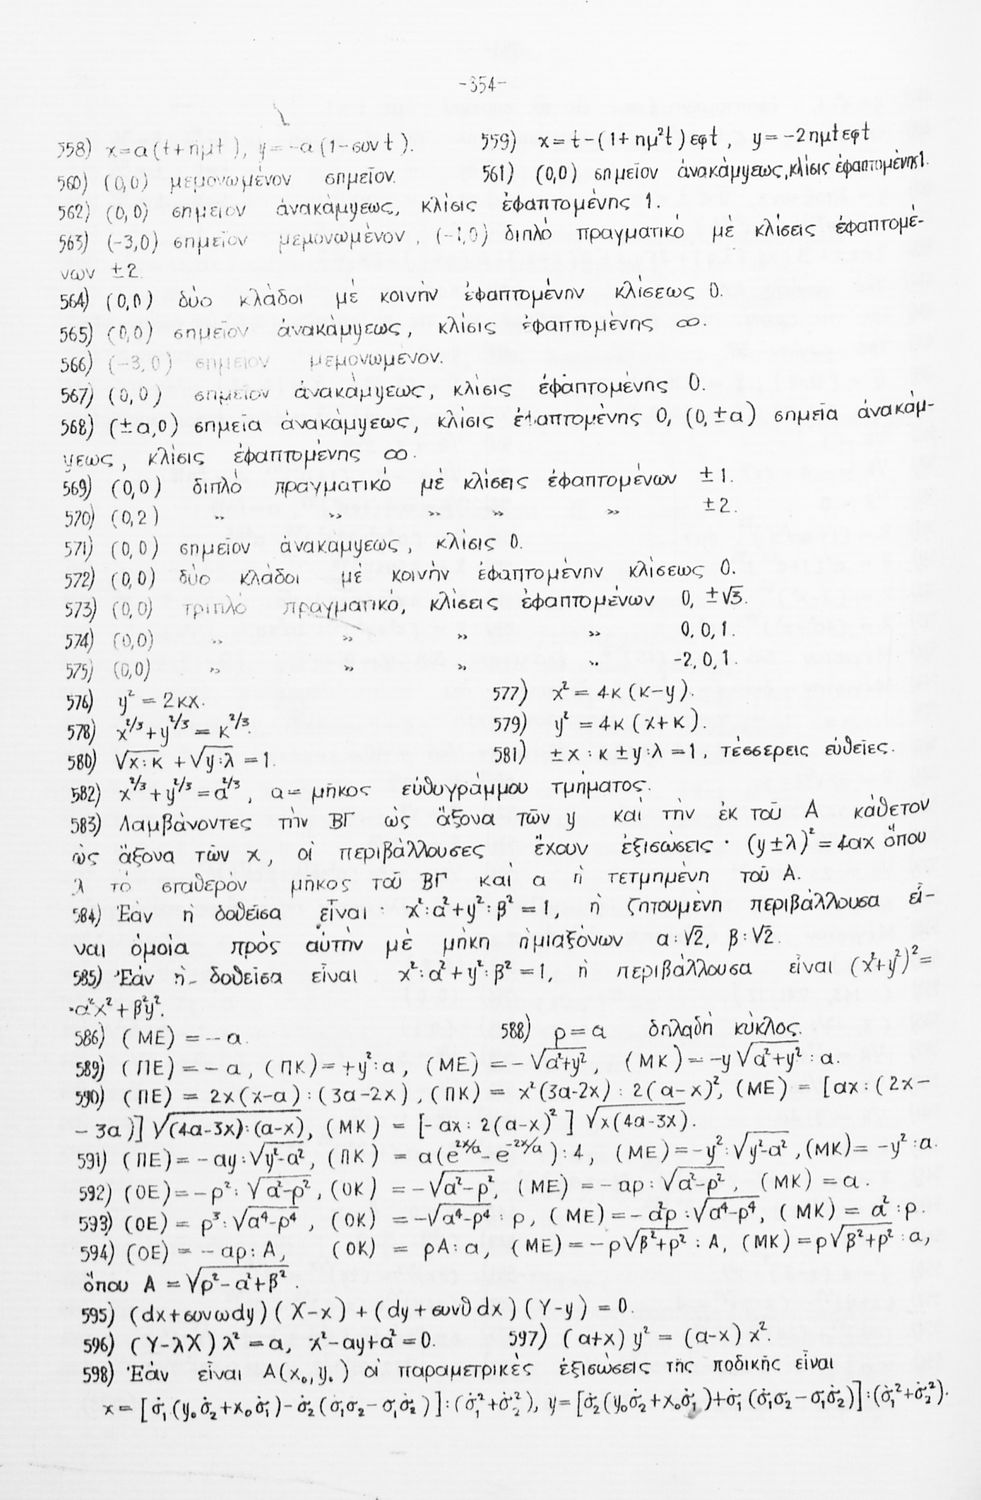 -354-
558) x=α(t+ημt), y=-α(1-συνt). 559) x=t-(1+ημ²t)εφt, y=-2ημtεφt
560) (0,0) μεμονωμένον σημεῖον. 561) (0,0) σημεῖον ἀνακάμψεως, κλίσις ἐφαπτομένης 1.
562) (0,0) σημεῖον ἀνακάμψεως, κλίσις ἐφαπτομένης 1.
563) (-3,0) σημεῖον μεμονωμένον, (-1,0) διπλό πραγματικό μὲ κλίσεις ἐφαπτομέ-
νων ±2.
564) (0,0) δύο κλάδοι μὲ κοινὴν ἐφαπτομένην κλίσεως 0.
565) (0,0) σημεῖον ἀνακάμψεως, κλίσις ἐφαπτομένης ∞.
566) (-3,0) σημεῖον μεμονωμένον.
567) (0,0) σημεῖον ἀνακάμψεως, κλίσις ἐφαπτομένης 0.
568) (±α,0) σημεῖα ἀνακάμψεως, κλίσις ἐφαπτομένης 0, (0,±α) σημεῖα ἀνακάμ-
ψεως, κλίσις ἐφαπτομένης ∞.
569) (0,0) διπλό πραγματικό μὲ κλίσεις ἐφαπτομένων ±1.
570) (0,2) " " " " " ±2.
571) (0,0) σημεῖον ἀνακάμψεως, κλίσις 0.
572) (0,0) δύο κλάδοι μὲ κοινὴν ἐφαπτομένην κλίσεως 0.
573) (0,0) τριπλό πραγματικό, κλίσεις ἐφαπτομένων 0, ±√3.
574) (0,0) " " " " 0,0,1.
575) (0,0) " " " " -2,0,1.
576) y² = 2κx. 577) x² = 4κ(κ-y).
578) x^2/3+y^2/3 = κ^2/3. 579) y² = 4κ(x+κ).
580) √x:κ + √y:λ = 1. 581) ±x:κ ±y:λ = 1, τέσσερεις εὐθεῖες.
582) x^2/3+y^2/3 = α^2/3, α = μῆκος εὐθυγράμμου τμήματος.
583) Λαμβάνοντες τὴν ΒΓ ὡς ἄξονα τῶν y καὶ τὴν ἐκ τοῦ Α κάθετον
ὡς ἄξονα τῶν x, οἱ περιβάλλουσες ἔχουν ἐξισώσεις · (y±λ)² = 4αx ὅπου
λ τὸ σταθερὸν μῆκος τοῦ ΒΓ καὶ α ἡ τετμημένη τοῦ Α.
584) Ἐὰν ἡ δοθεῖσα εἶναι · x²:α²+y²:β² = 1, ἡ ζητουμένη περιβάλλουσα εἶ-
ναι ὁμοία πρὸς αὐτὴν μὲ μήκη ἡμιαξόνων α:√2, β:√2.
585) Ἐὰν ἡ δοθεῖσα εἶναι x²:α²+y²:β² = 1, ἡ περιβάλλουσα εἶναι (x²+y²)² =
=α²x²+β²y².
586) (ΜΕ) = -α. 588) ρ=α δηλαδὴ κύκλος.
589) (ΠΕ) = -α, (ΠΚ) = +y²:α, (ΜΕ) = -√α²+y², (ΜΚ) = -y√α²+y²:α.
590) (ΠΕ) = 2x(x-α):(3α-2x), (ΠΚ) = x²(3α-2x):2(α-x)², (ΜΕ) = [αx:(2x-
-3α)]√(4α-3x):(α-x), (ΜΚ) = [-αx:2(α-x)²]√x(4α-3x).
591) (ΠΕ) = -αy:√y²-α², (ΠΚ) = α(e^2x/α-e^-2x/α):4, (ΜΕ) = -y²:√y²-α², (ΜΚ) = -y²:α.
592) (ΟΕ) = -ρ²:√α²-ρ², (ΟΚ) = -√α²-ρ², (ΜΕ) = -αρ:√α²-ρ², (ΜΚ) = α.
593) (ΟΕ) = ρ³:√α⁴-ρ⁴, (ΟΚ) = -√α⁴-ρ⁴:ρ, (ΜΕ) = -α²ρ:√α⁴-ρ⁴, (ΜΚ) = α²:ρ.
594) (ΟΕ) = -αρ:Α, (ΟΚ) = ρΑ:α, (ΜΕ) = -ρ√β²+ρ²:Α, (ΜΚ) = ρ√β²+ρ²:α,
ὅπου Α = √ρ²-α²+β².
595) (dx+συνωdy)(X-x)+(dy+συνθdx)(Y-y) = 0.
596) (Y-λX)λ² = α, x²-αy+α² = 0. 597) (α+x)y² = (α-x)x².
598) Ἐὰν εἶναι Α(x₀,y₀) οἱ παραμετρικὲς ἐξισώσεις τῆς ποδικῆς εἶναι
x = [σ̇₁(y₀σ̇₂+x₀σ̇₁)-σ̇₂(σ̇₁σ₂-σ₁σ̇₂)]:(σ̇₁²+σ̇₂²), y = [σ̇₂(y₀σ̇₂+x₀σ̇₁)+σ̇₁(σ̇₁σ₂-σ₁σ̇₂)]:(σ̇₁²+σ̇₂²).